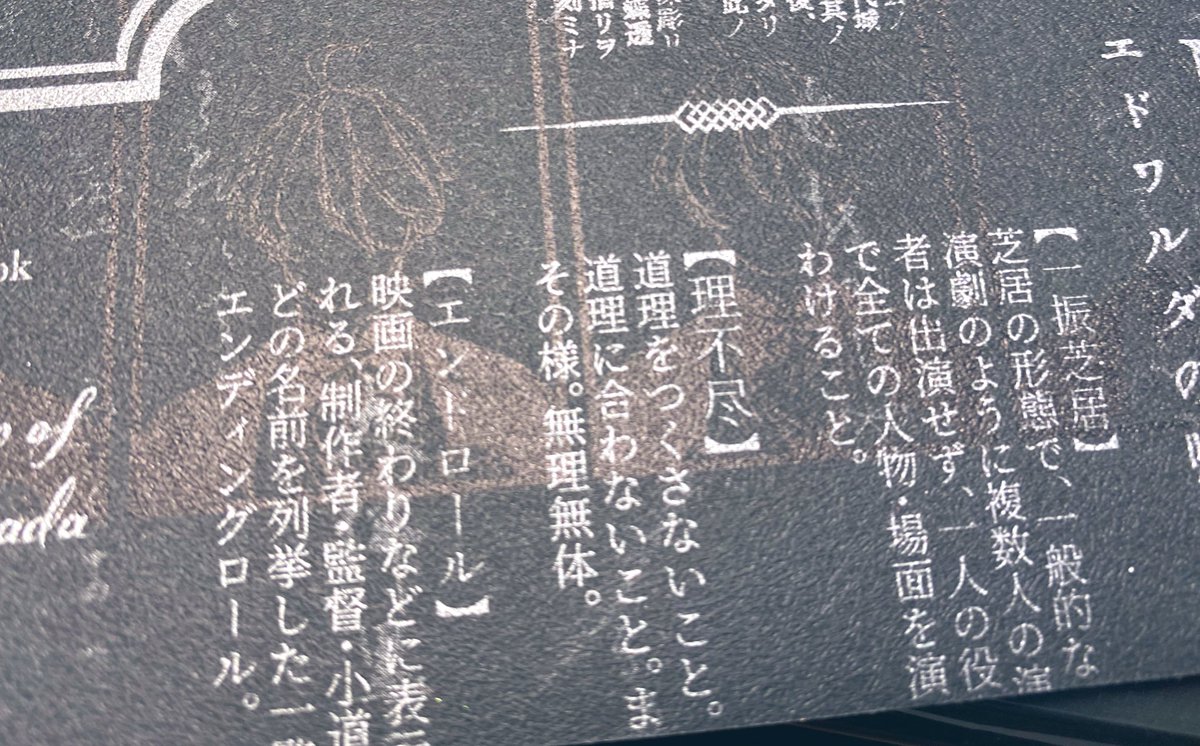 エドワルダの
其ノ
タリ
此ノ
刻ミナ
【一振芝居】
芝居の形態で、一般的な
演劇のように複数人の演
者は出演せず、一人の役
で全ての人物・場面を演
わけること。
【理不尽】
道理をつくさないこと。
道理に合わないこと。ま
その様。無理無体。
【エンドロール】
映画の終わりなどに表
れる、制作者・監督・小道
どの名前を列挙した一
エンディングロール。
ok
of
ada